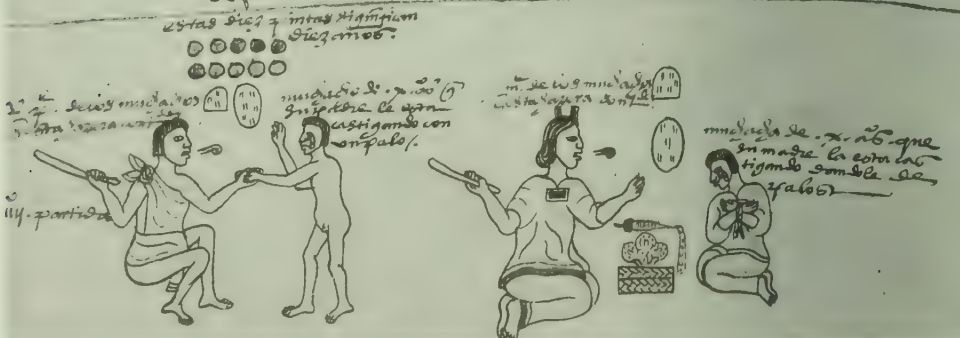 estas diez pintas significan
diez años.
de los muchachos
muchacho de . x . años q
su padre le esta
castigando con
un palo /.
iiij. partida
de los muchachas
muchacha de . x . años . que
su madre la esta cas
tigando dandole de
palos